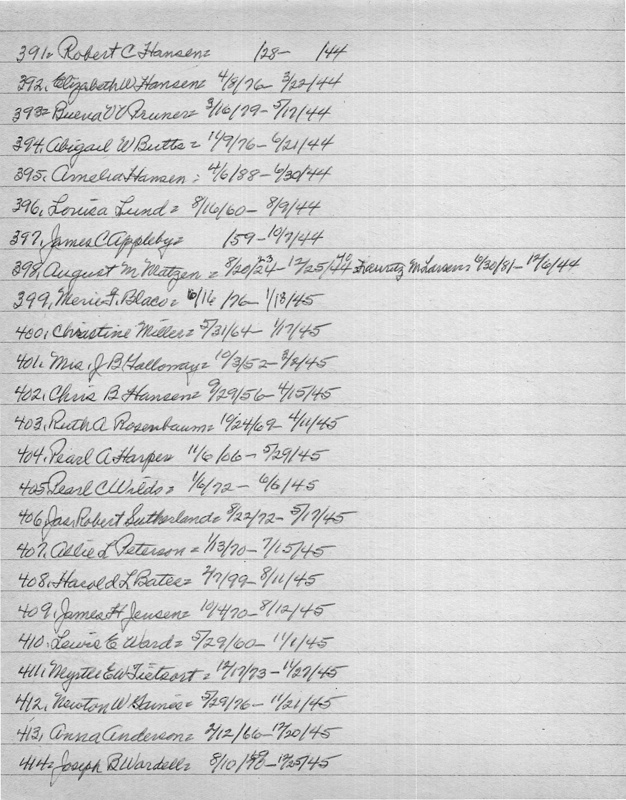 391= Robert C Hansen= /28- /44
392. Elizabeth W Hansen= 4/8/76- 3/22/44
393= Buena V V Pruner= 3/16/79- 5/17/44
394. Abigail W Butts= 11/9/76- 6/21/44
395. Amelia Hansen: 4/6/88- 6/30/44
396. Louisa Lund= 8/16/60- 8/9/44
397. James C Appleby= /59- 10/7/44
398. August M Matzen= 8/20/24- 12/25/44 M Larsen= 6/30/81- 12/6/44
399. Merie F. Blaco= 6/16/76- 1/13/45
400. Christine Miller= 5/31/64- 1/17/45
401. Mrs. J B Holloway= 10/3/52- 3/2/45
402. Chris B Hansen= 9/29/56- 4/15/45
403. Ruth A Rosenbaum= 10/24/69- 4/11/45
404. Pearl A Harper 11/6/06- 5/29/45
405 Pearl C Wilds= 1/6/72- 6/6/45
406 Jas. Robert Sutherland= 8/22/72- 5/17/45
407. Allie L Peterson= 1/13/70- 7/15/45
408. Harold L Bates= 2/7/99- 8/11/45
409. James H Jensen= 10/4/70- 8/12/45
410. Lewis E Ward= 5/29/60- 11/1/45
411. Myrtle E W Tietsort= 12/17/73- 11/27/45
412. Newton W Gaines= 5/29/76- 11/21/45
413. Anna Anderson= 2/12/66- 12/20/45
414= Joseph B Wardell= 8/10/ - 12/25/45